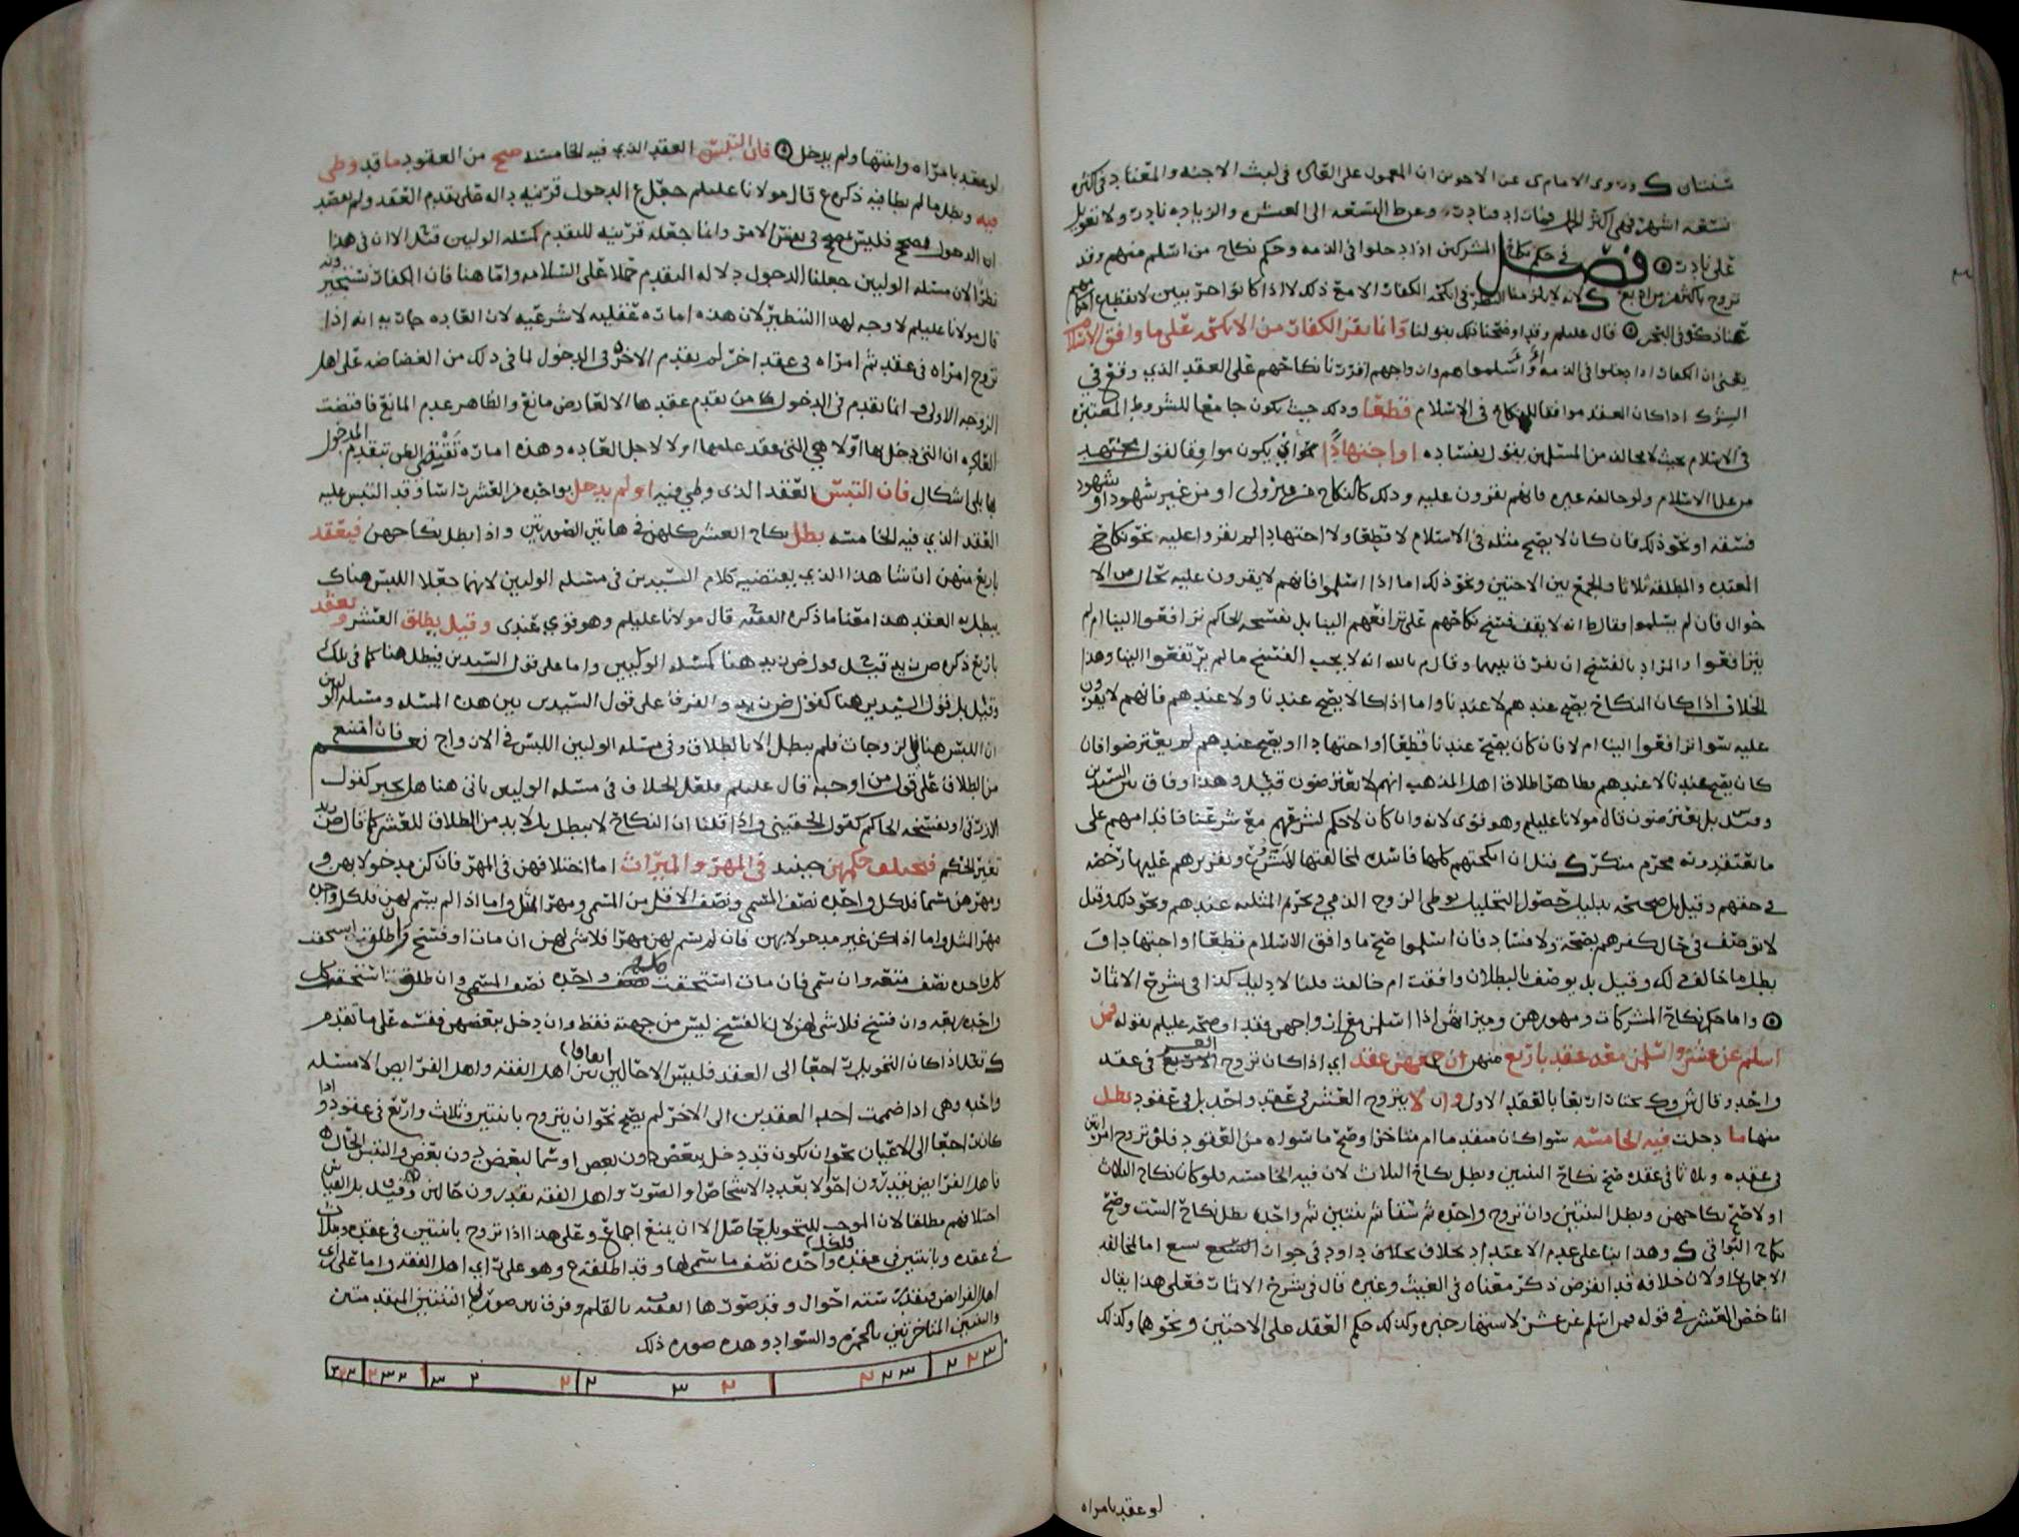 سنتان ك وروى الامام ى عن الاخوين ان المعمول على العاده فى لبث الاجنه والمعتاد فى اكثره
تسعه اشهر فهى اكثر وعرض التسعه الى العشره والزياده نادره ولا تعويل
على نادره فصل فى حكم نكاح المشركين اذا دخلوا فى الذمه وحكم نكاح من اسلم منهم وقد
تزوج باكثر من اربع ك لانه لا يلزمنا النظر فى انكحه الكفار الا مع ذلك لا اذا كانوا حربيين لانقطاع احكامهم
عنا ذكره فى البحر قال عليلم وقد اوضحنا ذلك بقولنا وانما يقر الكفار من الانكحه على ما وافق الاسلام
يعنى ان الكفار اذا دخلوا فى الذمه او اسلموا هم وازواجهم اقررنا نكاحهم على العقد الذي وقع في
الشرك اذا كان العقد موافقا للنكاح فى الاسلام قطعا وذلك حيث يكون جامعا للشروط المعتبره
فى الاسلام بحيث لا مخالف من المسلمين يقول بفساده او اجتهادا نحو ان يكون موافقا لقول مجتهد
من علما الاسلام ولو خالفه غيره فانهم يقرون عليه وذلك كالنكاح من غير ولى او من غير شهود او شهود
فسقه او نحو ذلك فان كان لا يصح مثله فى الاسلام لا قطعا ولا اجتهادا لم يقروا عليه نحو نكاح
المعتده والمطلقه ثلاثا والجمع بين الاختين ونحو ذلك اما اذا اسلموا فانهم لا يقرون عليه بحال من الا
حوال فان لم يسلموا فقال ط انه لا يقف فسخ نكاحهم على ترافعهم الينا بل يفسخه الحاكم ترافعوا الينا ام لم
يترافعوا والمراد بالفسخ ان يفرق بينهما وقال م بالله انه لا يجب الفسخ ما لم يترافعوا الينا وهذا
الخلاف اذا كان النكاح يصح عندهم لا عندنا واما اذا كان لا يصح عندنا ولا عندهم فانهم لا يقرون
عليه سوا ترافعوا الينا ام لا فان كان يصح عندنا قطعا او اجتهادا او يصح عندهم لم يعترضوا فان
كان يصح عندنا لا عندهم فظاهر اطلاق اهل المذهب انهم لا يعترضون قيل وهذا وفاق بين السيدين
وقيل بل يعترضون قال مولانا عليلم وهو قوى لانه وان كان لا حكم لشرعهم مع شرعنا فاقدامهم على
ما يعتقدونه محرم منكر ك قيل ان انكحتهم كلها فاسده لمخالفتها الشرع وتقريرهم عليها رخصه
في حقهم وقيل بل صحيحه بدليل حصول التحليل بوطى الزوج الذمي في تحريم المثلثه عندهم ونحو ذلك وقيل
لا توصف في حال كفرهم بصحه ولا فساد فان اسلموا صح ما وافق الاسلام قطعا او اجتهادا و
بطل ما خالف ذلك وقيل بل يوصف بالبطلان وافقت ام خالفت قلنا لا دليل كذا فى شرح الاثمار
واما حكم نكاح المشركات ومهورهن وميراثهن اذا اسلمن مع ازواجهن فقد اوضحه عليلم بقوله فمن
اسلم عن عشر واسلمن معه عقد باربع منهن ان جمعهن عقد اي اذا كان تزوج العشر فى عقد
واحد وقال ش وك يختار اربعا بالعقد الاول وان لا يتزوج العشر فى عقد واحد بل فى عقود بطل
منها ما دخلت فيه الخامسه سوا كان متقدما ام متاخرا وصح ما سواه من العقود فلو تزوج امراتين
فى عقده وثلاثا فى عقده صح نكاح الثنتين وبطل نكاح الثلاث لان فيه الخامسه فلو كان نكاح الثلاث
اولا صح نكاحهن وبطل الثنتين وان تزوج واحده ثم ستا ثم ثنتين ثم واحده بطل نكاح الست وصح
نكاح البواقى ك وهذا بنا على عدم الاعتداد بخلاف داود فى جواز التسع اما لمخالفه
الاجماع او لان خلافه قد انقرض ذكر معناه فى الغيث وغيره قال فى شرح الاثمار فعلى هذا يقال
انما خص العشر فى قوله فمن اسلم عن عشر لاستظهار خبره وكذلك حكم العقد على الاختين ونحوهما وكذلك
لو عقد بامراه
لو عقد بامراه وابنتها ولم يدخل فان التبس العقد الذي فيه الخامسه صح من العقود ما قد وطى
فيه وبطل ما لم يطا فيه ذكره ع قال مولانا عليلم جعل ع الدخول قرينه داله على تقدم العقد ولم يقصد
ان الدخول مصحح فليس بمصحح فى نفس الامر وانما جعله قرينه للتقدم كمسله الوليين قيل الا ان فى هذا
نظرا لان مسله الوليين جعلنا الدخول دلاله التقدم حملا على السلامه واما هنا فان الكفار يستجيزونه
قال مولانا عليلم لا وجه لهذا التنظير لان هذه اماره عقليه لا شرعيه لان العاده جاريه انه اذا
تزوج امراه فى عقد ثم امراه فى عقد اخر لم يقدم الاخره فى الدخول لما فى ذلك من الغضاضه على اهل
الزوجه الاولى وانما يقدم فى الدخول من تقدم عقدها الا لعارض مانع والظاهر عدم المانع فاقتضت
العاده ان التى دخل بها اولا هي التى عقد عليها اولا لاجل العاده وهذه اماره تفيد الظن بتقدم المدخول
بها بلى اشكال فان التبس العقد الذى وطى فيه او لم يدخل بواحده من العشر راسا وقد التبس عليه
العقد الذي فيه الخامسه بطل نكاح العشر كلهن فى هاتين الصورتين واذا بطل نكاحهن فيعقد
باربع منهن ان شا هذا الذي يقتضيه كلام السيدين فى مسله الوليين لانهما جعلا اللبس هناك
يبطل به العقد هذا معنا ما ذكره الفقيه ح قال مولانا عليلم وهو قوي عندى وقيل يطلق العشر ويعقد
باربع ذكره ض زيد قيل قول ض زيد هنا كمسله الوليين واما على قول السيدين فيبطل هنا كما فى تلك
وقيل بل قول السيدين هنا كقول ض زيد والفرق على قول السيدين بين هذه المسله ومسله الوليين
ان اللبس هنا فى الزوجات فلم يبطل الا بالطلاق وفى مسله الوليين اللبس فى الازواج نعم فان امتنع
من الطلاق على قول من اوجبه قال عليلم فلعل الخلاف فى مسله الوليين ياتى هنا هل يجبر كقول
او يفسخه الحاكم كقول الحقينى واذا قلنا ان النكاح لا يبطل بل لا بد من الطلاق للعشر كما قال ض زيد
تغير الحكم فيختلف حكمهن حينيد فى المهر والميراث اما اختلافهن فى المهر فان كن مدخولا بهن و
مهرهن مسما فلكل واحده نصف المسمى ونصف الاقل من المسمى ومهر المثل واما اذا لم يسم لهن فلكل واحده
مهر المثل واما اذا كن غير مدخولا بهن فان لم يسم لهن مهرا فلا شى لهن ان مات او فسخ وان طلق استحقت
كل واحده نصف متعه وان سمى فان مات استحقت كل واحده نصف المسمى وان طلق استحقت كل
واحده ربعه وان فسخ فلا شى لهن لان الفسخ ليس من جهته فقط وان دخل ببعضهن قسم على ما تقدم
اذا كان التحويل راجعا الى العقد فليس الا حالين بين اهل الفقه واهل الفرايض الا مسله
واحده وهى اذا ضمت احد العقدين الى الاخر لم يصح نحو ان يتزوج باثنتين وثلاث واربع فى عقود واذا
كان راجعا الى الاعيان نحو ان يكون قد دخل ببعض دون بعض او سما لبعض دون بعض والتبس الحال
فاهل الفرايض يقدرون احوالا بعدد الاشخاص او الصور واهل الفقه يقدرون حالين وقيل بل القياس
اختلافهم مطلقا لان الموجب للتحويل حاصل الا ان يمنع اجماع وعلى هذا اذا تزوج باثنتين فى عقده وبثلاث
في عقده وباثنتين فى عقده فلكل واحده نصف ما سمى لها وقد اطلقه ح وهو على راي اهل الفقه واما على راي
اهل الفرايض فتقدر سته احوال وقد صورها الفقيه بالقلم وفرق بين صورتى الثنتين المتقدمتين
والثنتين المتاخرتين بالحمره والسواد وهذه صوره ذلك
٣ ٢ ٢ ٣ ٢ ٢ ٢ ٣ ٢ ٢ ٢ ٣ ٢ ٣ ٢ ٣ ٢ ٢